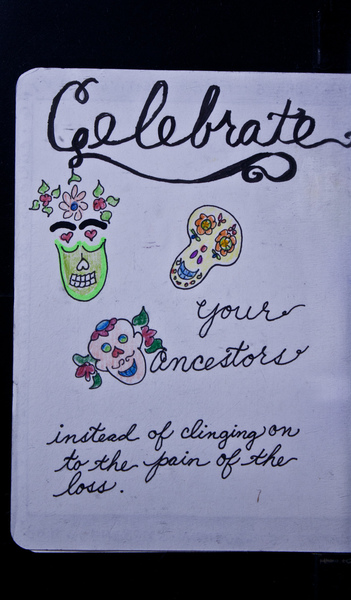 Celebrate
Your
Ancestors
instead of clinging on
to the pain of the
loss.